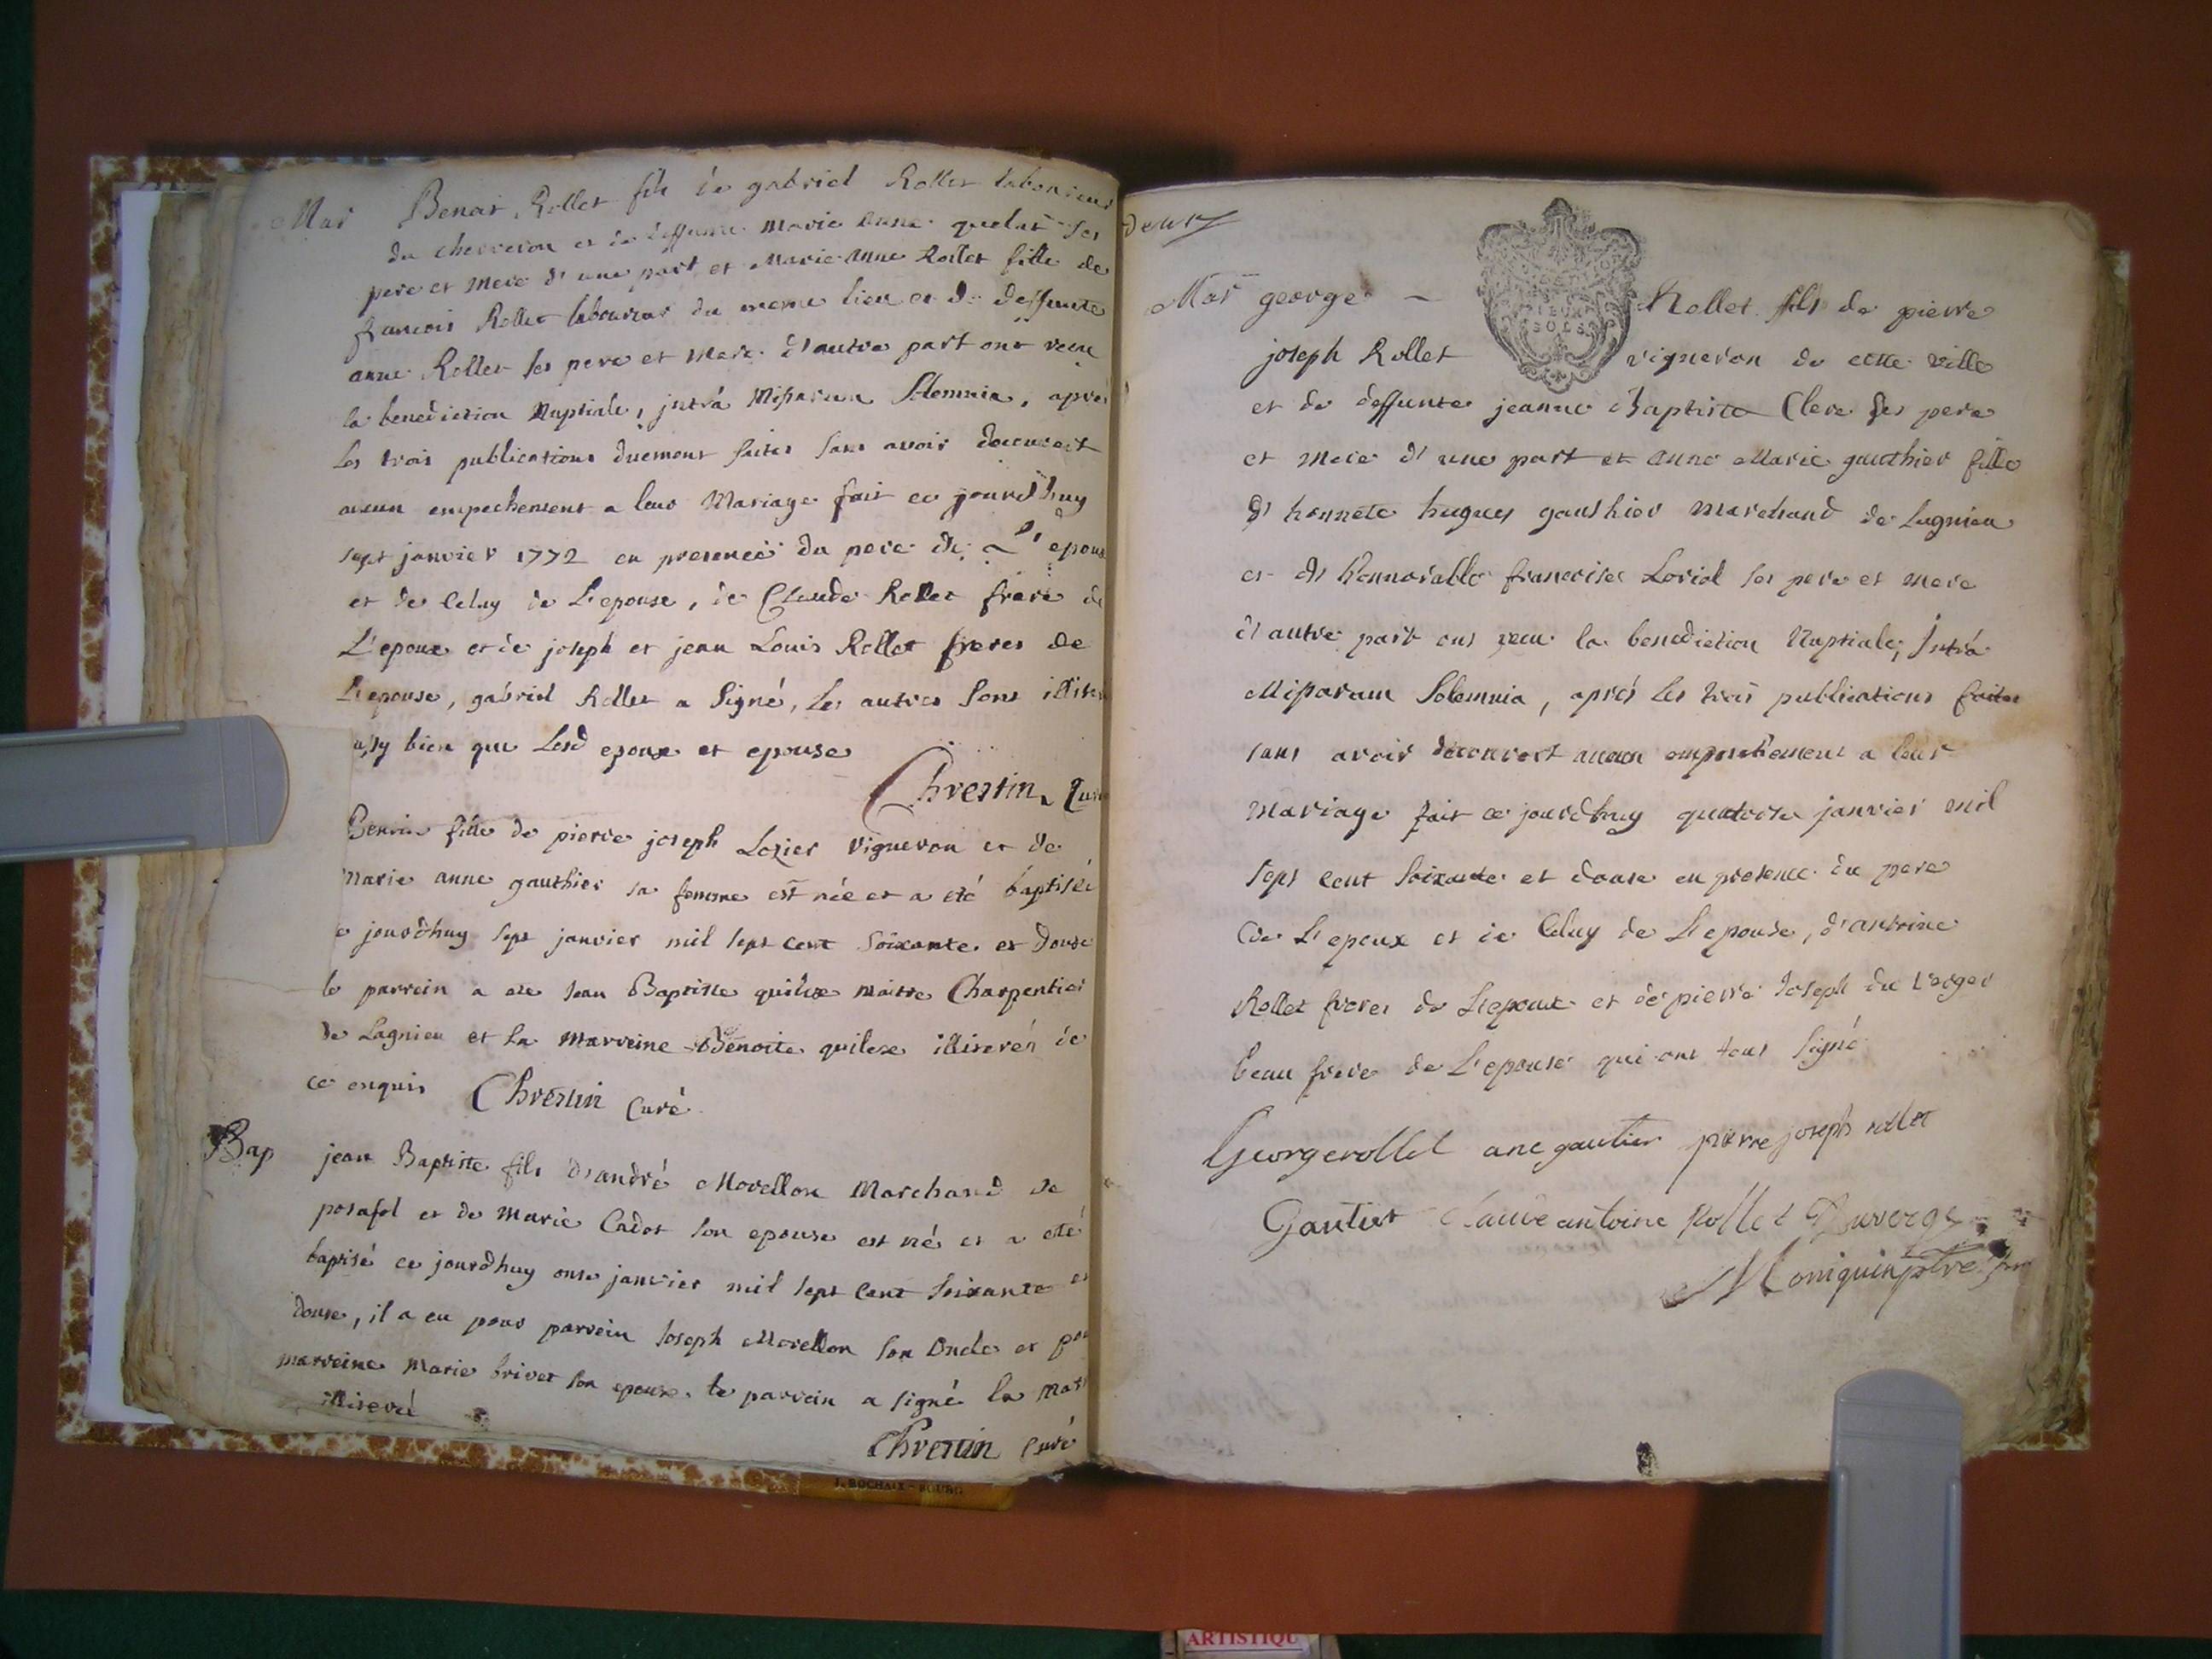 Mar Benoit Rollet fils de gabriel Rollet laboureur
du cherveron et de deffunte marie anne quelat ses
pere et mere d'une part et marie anne Rollet fille de
francois Rollet laboureur du meme lieu et de deffunte
anne Rollet ses pere et mere d'autre part ont recu
la benediction nuptiale, jntrà missarum solemnia, après
les trois publications duement faites sans avoir decouvert
aucun empechement a leur mariage fait ce jourdhuy
sept janvier 1772 en presence du pere de l'epoux
et de celuy de L'epouse, de Claude Rollet frere de
L'epoux et de joseph et jean Louis Rollet freres de
L'epouse, gabriel Rollet a signé, les autres sont illiter
assy bien que lesd epoux et epouse
Chrestin Curé
fille de pierre joseph Lozier vigneron et de
marie anne gauthier sa femme est née et a eté baptisée
jourdhuy sept janvier mil sept cent soixante et douze
le parrein a ete jean Baptiste quilex maitre Charpentier
de Lagnieu et la marreine Benoite quilex illiteréz de
ce enquis Chrestin Curé
Bap jean Baptiste fils d'andré Morellon Marchand de
posafol et de marie Cadot son epouse est né et a eté
baptisé ce jourdhuy onze janvier mil sept cent soixante et
douze, il a eu pour parrein joseph Morellon son oncle et pou
marreine marie brivet son epouse. le parrein a signé la mar
illiteréé
Chrestin Curé
deux
Mar george Rollet fils de pierre
joseph Rollet vigneron de cette ville
et de deffunte jeanne Baptiste Clerc ses pere
et mere d'une part et anne marie gauthier fille
d'honnete hugues gauthier marchand de lagnieu
et d'honnorable francoise Loriol ses pere et mere
d'autre part ont recu la benediction nuptiale, Jntrà
missarum solemnia, après les trois publications faites
sans avoir decouvert aucun empechement a leur
mariage fait ce jourdhuy quatorze janvier mil
sept cent soixante et douze en presence du pere
de L'epoux et de celuy de L'epouse, d'antoine
Rollet freres de L'epoux et de pierre joseph du verger
beau frere de L'epouse qui ont tous signé
George rollet ane gautier pierre joseph rollet
Gautier Claude antoine Rollet Duverge
Moniquin ptre
DEUX
SOLS
J. ROCHAIX - BOURG
ARTISTIQU